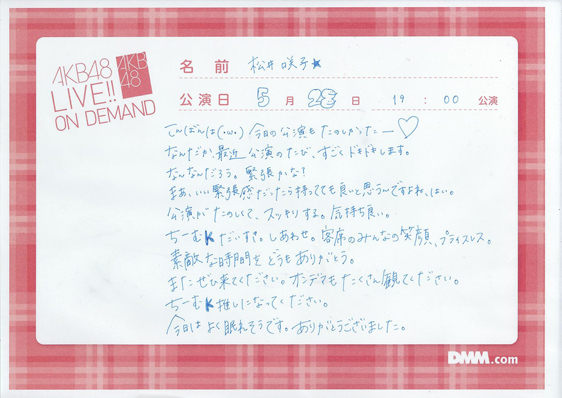 AKB48
LIVE!!
ON DEMAND
AKB
48
名前 松井咲子★
公演日 5月28日 19:00公演
こんばんは(・ω・) 今日の公演もたのしかったー♡
なんだか最近公演のたび、すごくドキドキします。
なんなんだろう。緊張かな?
まあ、いい緊張感だったら持ってても良いと思うんですよね、はい。
公演がたのしくて、スッキリする。気持ち良い。
ちーむKだいすき。しあわせ。客席のみんなの笑顔、プライスレス。
素敵な時間をどうもありがとう。
またぜひ来てください。オンデマもたくさん観てください。
ちーむK推しになってください。
今日はよく眠れそうです。ありがとうございました。
DMM.com